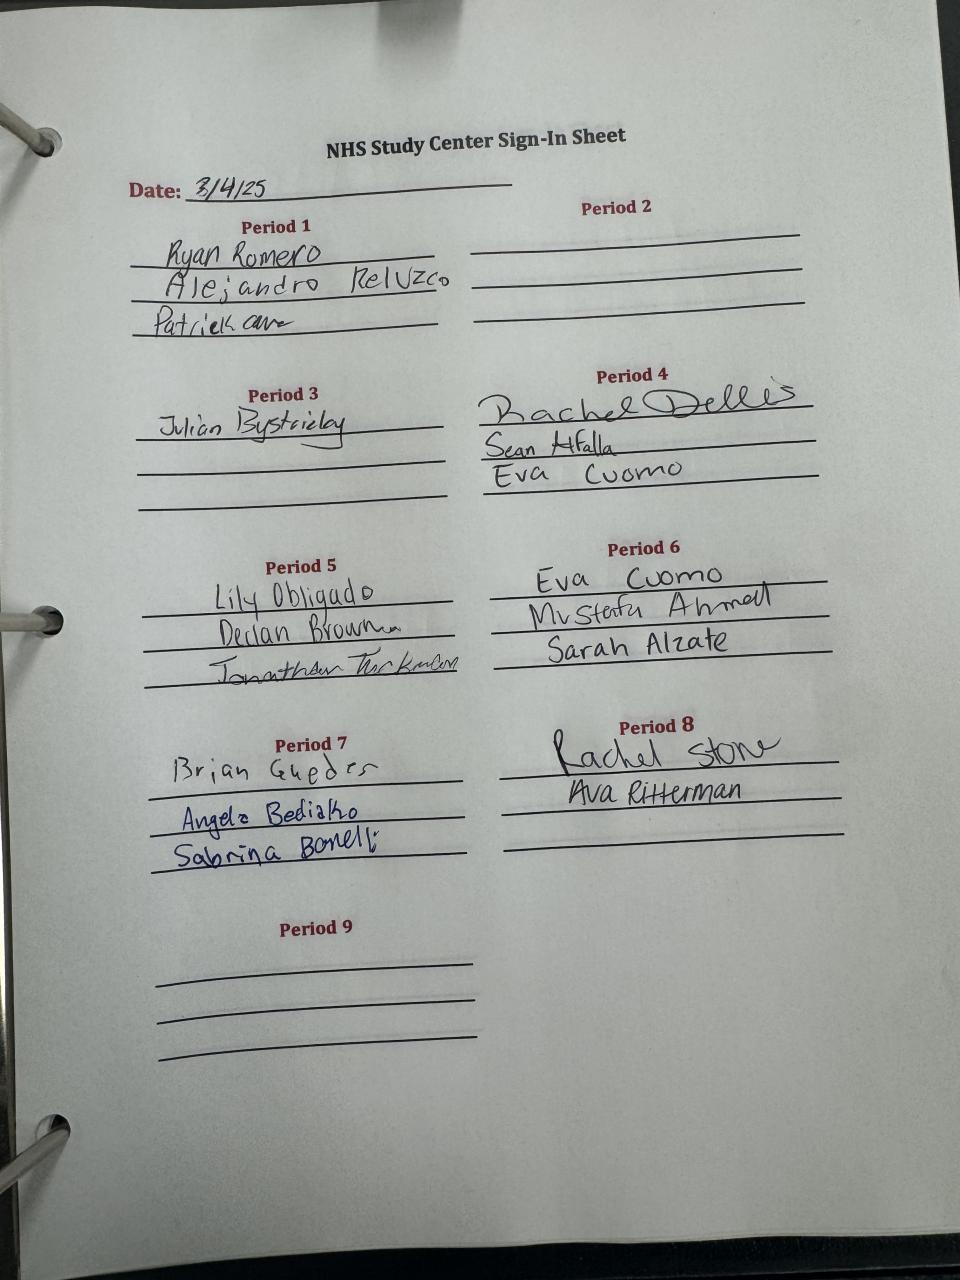 NHS Study Center Sign-In Sheet
Date: 3/4/25
Period 1
Ryan Romero
Alejandro Reluzco
Patrick
Period 2
Period 3
Julian
Period 4
Rachel Dellis
Sean Alfalla
Eva Cuomo
Period 5
Lily Obligado
Declan Brown
Jonathan Turkmen
Period 6
Eva Cuomo
Mustafa Ahmed
Sarah Alzate
Period 7
Brian Guedes
Angela Bediako
Sabrina Bonelli
Period 8
Rachel Stone
Ava Ritterman
Period 9